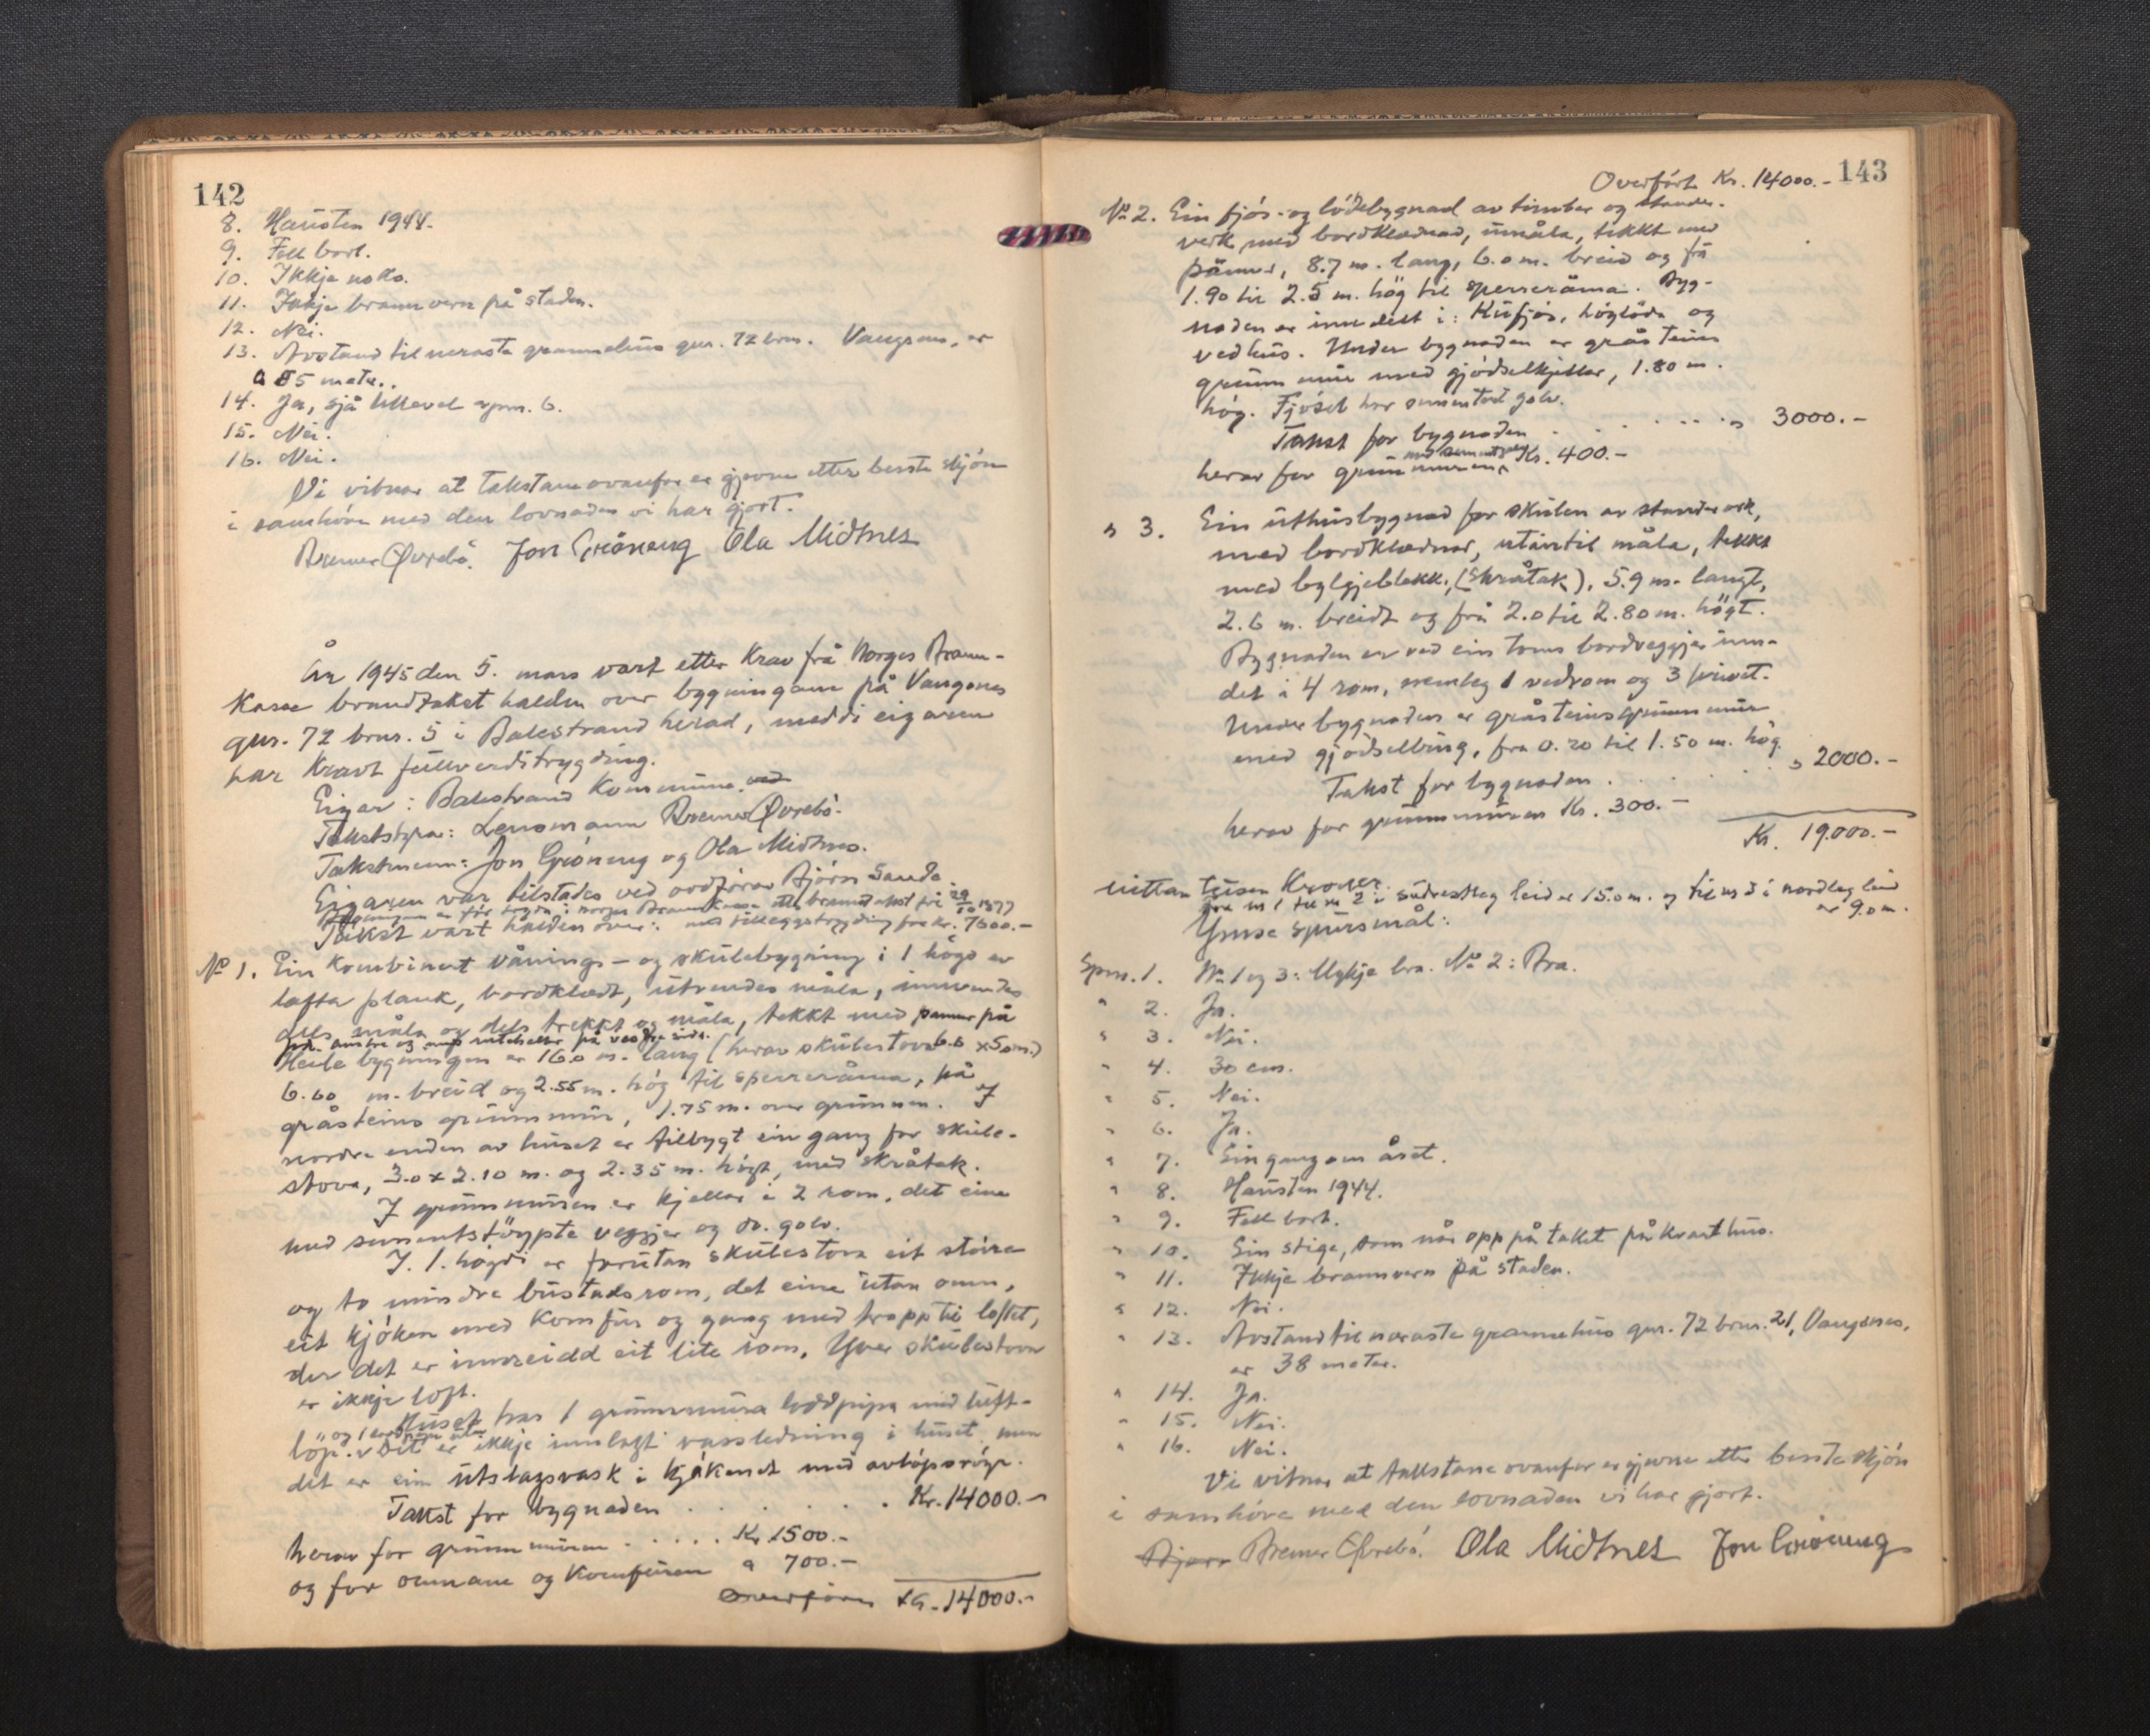 142
8. Hausten 1944.
9. Fell bort.
10. Ikkje noko.
11. Ikkje brannvern på staden.
12. Nei.
13. Avstand til næraste grannehus gnr. 72 brn. Vangsnes, er
85 meter.
14. Ja, sjå likevel spm. 6.
15. Nei.
16. Nei.
Vi vitnar at takstane ovanfor er gjevne etter beste skjön
i samhöve med den lovnaden vi har gjort.
Bremer Øvrebö. Jon Gröneng Ola Midtnes
År 1945 den 5. mars vart etter krav frå Norges Brann-
kasse brandtakst halden over bygningane på Vangsnes
gnr. 72 brnr. 5 i Balestrand herad, med di eigaren
har kravt fullverditrygding.
Eigar: Balestrand Kommune. ved
Takststyrar: Lensmann Bremer Øvrebö.
Takstmenn: Jon Gröneng og Ola Midtnes.
Eigaren var tilstades ved ordförar Björn Sande.
Bygningen er för trygda i Norges Brannkasse etter brandtakst frå 29/10 1877
Takst vart halden over: med tilleggstrygding for kr. 7600.-
No 1. Ein kombinert vånings- og skulebygning i 1 högd av
lafta plank, bordklædt, utvendes måla, innvendes
dels måla og dels trekkt og måla, tekkt med pannor på
austre og med rutehellor på vestre sida.
Heile bygningen er 16.0 m. lang (herav skulestova 6.6 x 5.0 m.)
6.60 m. breid og 2.55 m. hög til sperreråma, på
gråsteins grunnmur, 1.75 m. over grunnen. I
nordre enden av huset er tilbygt ein gang for skule-
stova, 3.0 x 2.10 m. og 2.35 m. högt, med skråtak.
I grunnmuren er kjellar i 2 rom, det eine
med sementstöypte veggjer og do. golv.
I 1. högdi er forutan skulestova eit större
og to mindre bustadsrom, det eine utan omn,
eit kjöken med komfur og gang med tropp til loftet,
der det er innreidd eit lite rom. Yver skulestova
er ikkje loft.
Huset har 1 grunnmura loddpipa med luft-
löp. Det er ikkje innlagt vassledning i huset, men
det er ein utslagsvask i kjökenet med avlöpsröyr.
Takst for bygnaden . . . . . . Kr. 14000.-
herav for grunnmuren . . . . Kr. 1500.-
og for omnane og komfuren " 700.-
Overföres Kr. 14000.-
143
Overfört Kr. 14000.-
No 2. Ein fjös- og lödebygnad av timber og stander-
verk med bordklædnad, umåla, tekkt med
pannor, 8.7 m. lang, 6.0 m. breid og frå
1.90 til 2.5 m. hög til sperreråma. Byg-
naden er inndelt i: Kufjös, höylöda og
vedhus. Under bygnaden er gråsteins
grunnmur med gjödselkjellar, 1.80 m.
hög. Fjöset har sementert golv.
Takst for bygnaden . . . . . . " 3000.-
herav for grunnmuren Kr. 400.-
" 3. Ein uthusbygnad for skulen av standerverk,
med bordklædnad, utantil måla, tekkt
med bylgjeblekk, (skråtak), 5.9 m. langt,
2.6 m. breidt og frå 2.0 til 2.80 m. högt.
Bygnaden er ved ein toms bordveggjer inn-
delt i 4 rom, nemleg 1 vedrom og 3 privet.
Under bygnaden er gråsteinsgrunnmur
med gjödselbing, fra 0.20 til 1.50 m. hög.
Takst for bygnaden . . . . . " 2000.-
herav for grunnmuren Kr. 300.-
Kr. 19.000.-
nittan tusen Kroner.
fra nr 1 til nr 2 i sudvestleg leid er 15.0 m. og til nr 3 i nordleg leid
er 9.0 m.
Ymse spursmål:
Spm. 1. No 1 og 3: Mykje bra. No 2: Bra.
" 2. Ja.
" 3. Nei.
" 4. 30 cm.
" 5. Nei.
" 6. Ja.
" 7. Ein gang om året.
" 8. Hausten 1944.
" 9. Fell bort.
" 10. Ein stige, som når opp på taket på kvart hus.
" 11. Ikkje brannvern på staden.
" 12. Nei.
" 13. Avstand til næraste grannehus gnr. 72 brnr. 21, Vangsnes,
er 38 meter.
" 14. Ja.
" 15. Nei.
" 16. Nei.
Vi vitnar at takstane ovanfor er gjevne etter beste skjön
i samhöve med den lovnaden vi har gjort.
Bjørn Bremer Øvrebö. Ola Midtnes Jon Gröneng